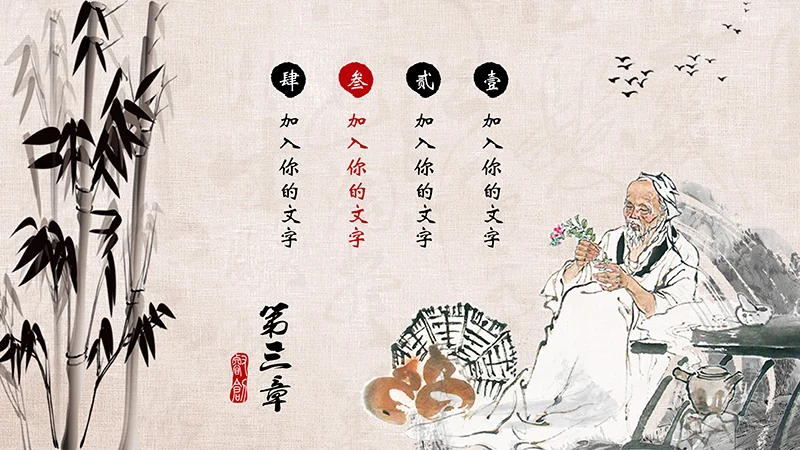 壹
加入你的文字
贰
加入你的文字
叁
加入你的文字
肆
加入你的文字
第三章
睿創